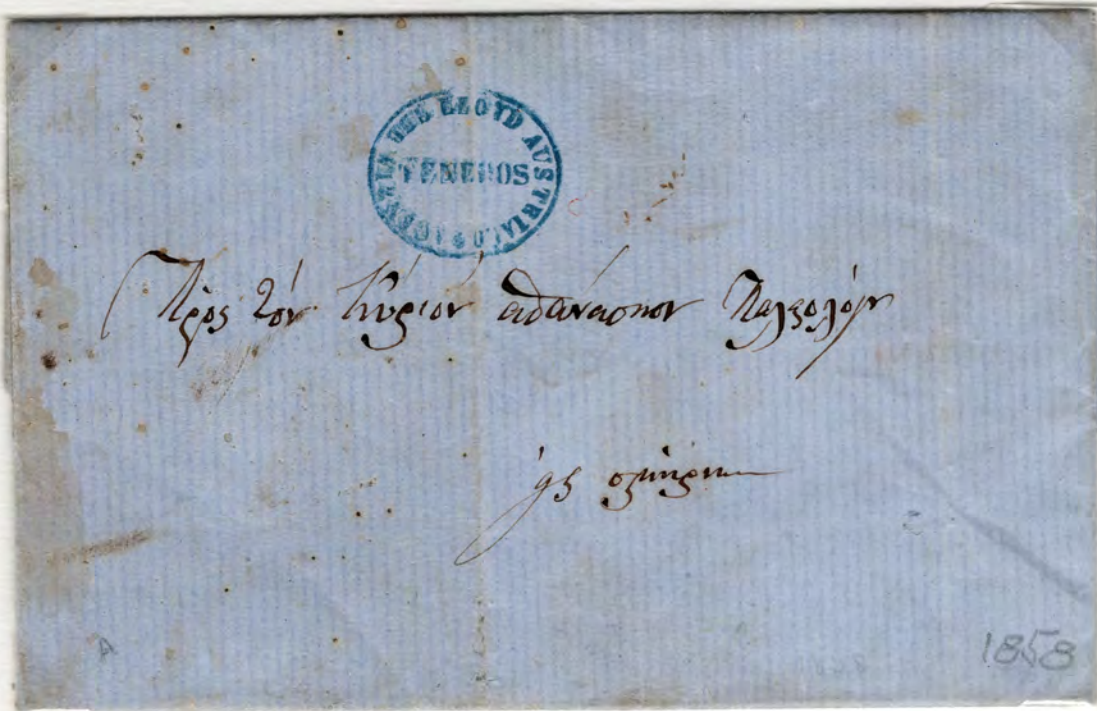 AGENZIA DEL LLOYD AUSTRIACO
TENEDOS
Πρὸς τὸν Κύριον αθανάσηον Παλεολόγον
ης σμήρνην
A
1858